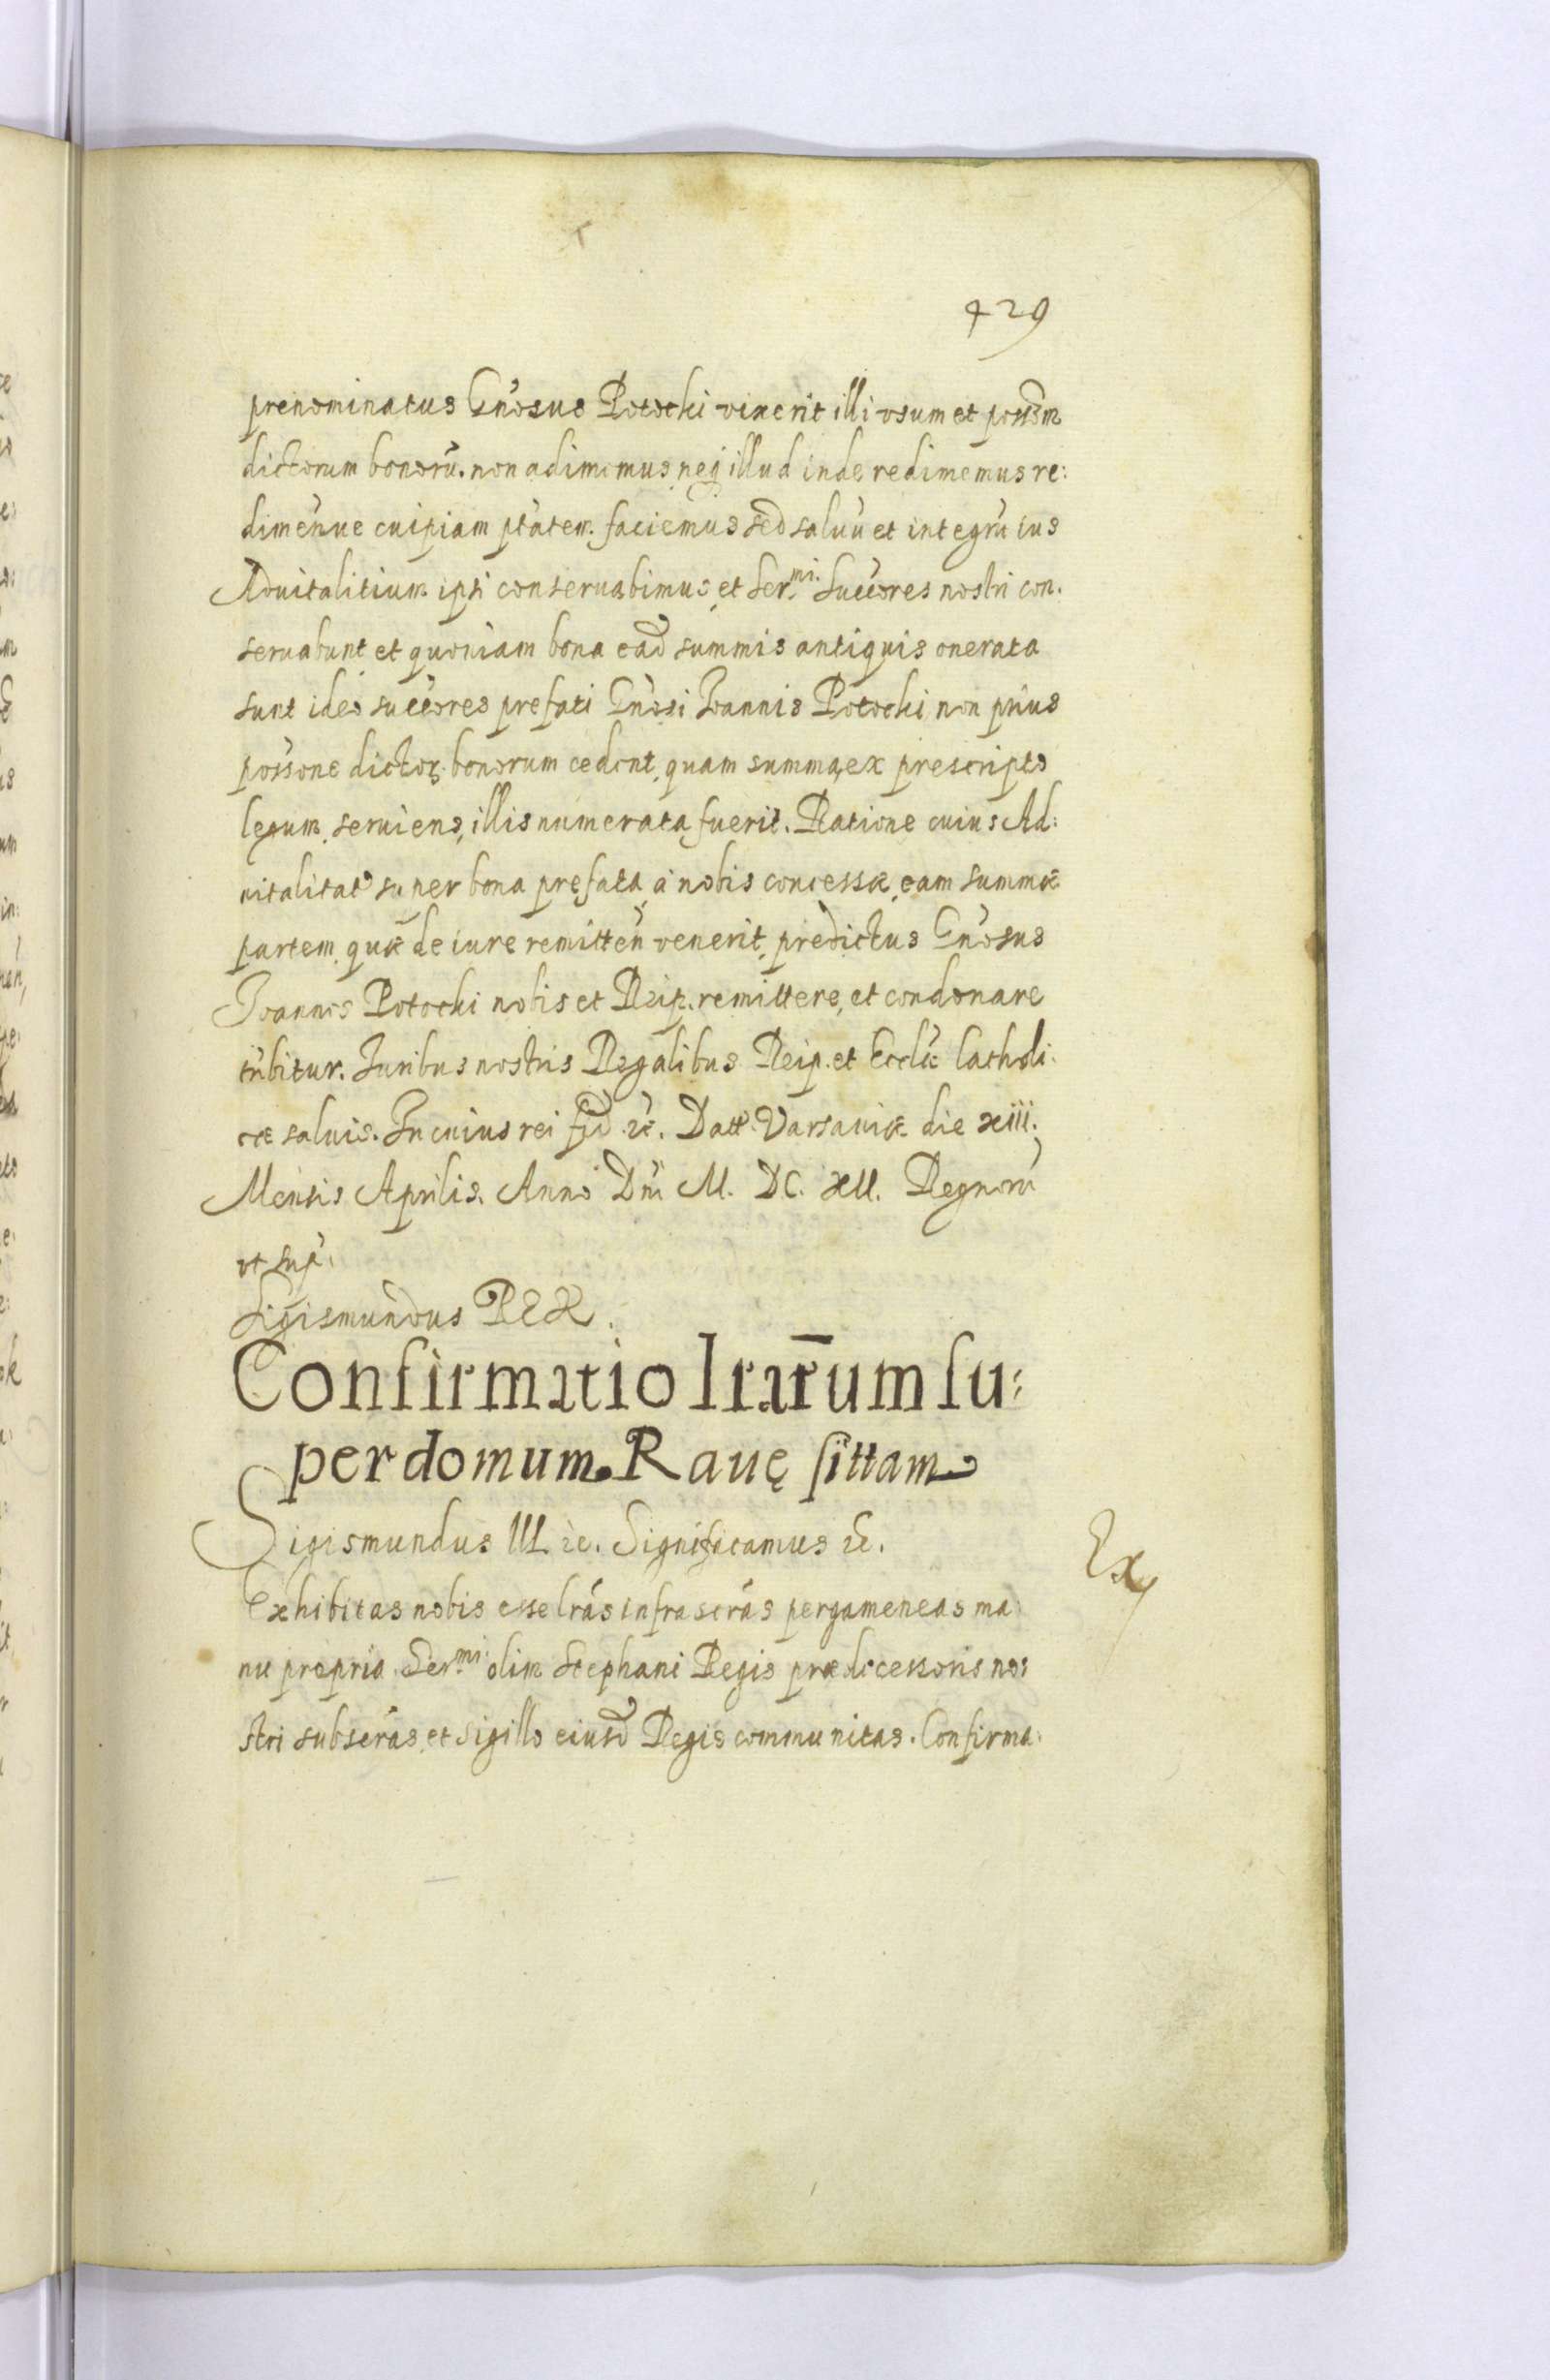 429
prenominatus Gnosus Potocki vixerit illi vsum et possōm
dictorum bonorū. non adimemus neq illud inde redimemus re:
dimenue cuipiam ptatem faciemus sed saluū et integrū ius
Aduitalitium ipsi conseruabimus, et Ser.mi Succores nostri con.
seruabunt et quoniam bona ead summis antiquis onerata
sunt ideo succores prefati Gnosi Joannis Potocki non prius
possone dictor. bonorum cedent, quam summa, ex prescripto
legum, seruiens, illis numerata fuerit. Ratione cuius Ad:
uitalitat super bona prefata, à nobis concessæ, eam summæ
partem, quæ de iure remitten venerit, predictus Gnosus
Joannes Potocki nobis et Reip. remittere, et condonare
tnbitur. Juribus nostris Regalibus Reip. et Ecclæ Catholi:
cæ saluis. In cuius rei fid ꝛc. Datt Varsauiæ die xiii.
Mensis Aprilis. Anno Dni M. DC. XII. Regnorū
vt sup.
Sigismundus REX.
Confirmatio lrarum su:
per domum. Rauę sittam
Sigismundus III. ꝛc. Significamus ꝛc.
Ex
Exhibitas nobis esse lras infrascras pergameneas ma
nu propria Ser.mi olim Stephani Regis prædecessoris no:
stri subscras, et sigillo eiusd Regis communitas. Confirma: